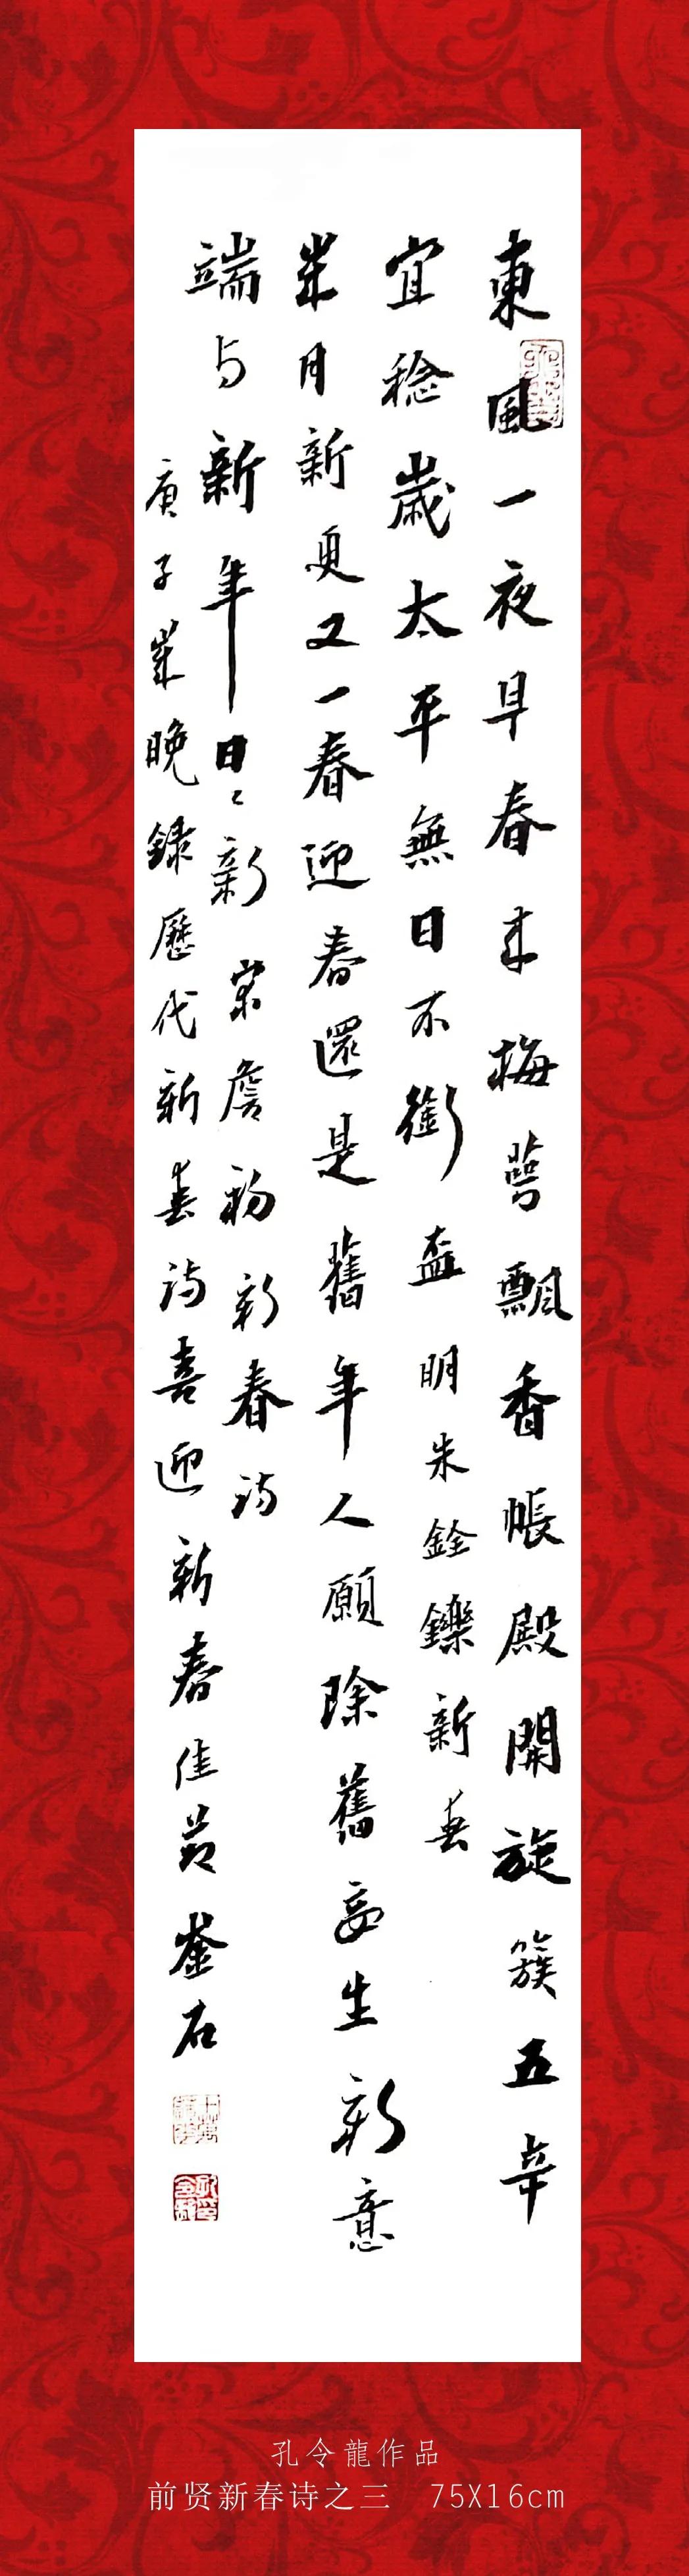 東風一夜早春来梅萼飄香帳殿開旋簇五辛
宜稔歲太平無日不銜盃 明朱銓鑠新春
年月新更又一春迎春還是舊年人願除舊妄生新意
端与新年日〻新 宋詹初新春詩
庚子歲晚錄歷代新春詩喜迎新春佳節崟石
孔令龍作品
前贤新春诗之三 75X16cm